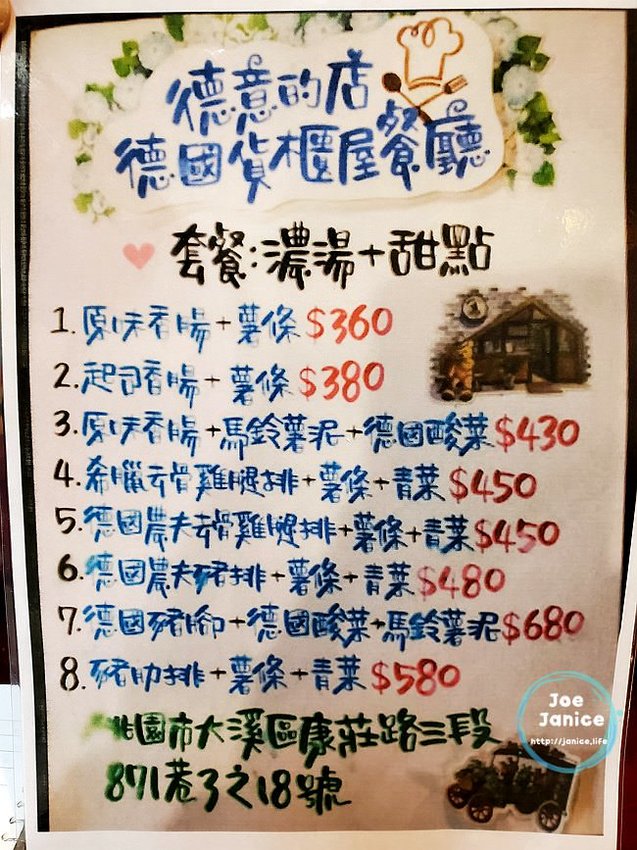 德意的店
德國貨櫃屋餐廳
套餐:濃湯+甜點
1.原味香腸+薯條$360
2.起司香腸+薯條$380
3.原味香腸+馬鈴薯泥+德國酸菜$430
4.希臘去骨雞腿排+薯條+青菜$450
5.德國農夫去骨雞腿排+薯條+青菜$450
6.德國農夫豬排+薯條+青菜$480
7.德國豬腳+德國酸菜+馬鈴薯泥$680
8.豬肋排+薯條+青菜$580
桃園市大溪區康莊路三段
871巷3之18號
Joe
Janice
http://janice.life